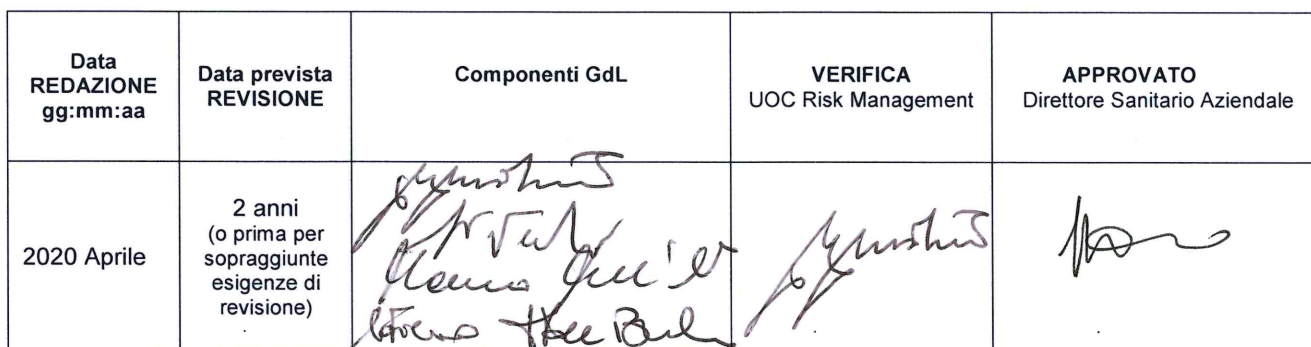 Data
REDAZIONE
gg:mm:aa
Data prevista
REVISIONE
Componenti GdL
VERIFICA
UOC Risk Management
APPROVATO
Direttore Sanitario Aziendale
2020 Aprile
2 anni
(o prima per
sopraggiunte
esigenze di
revisione)